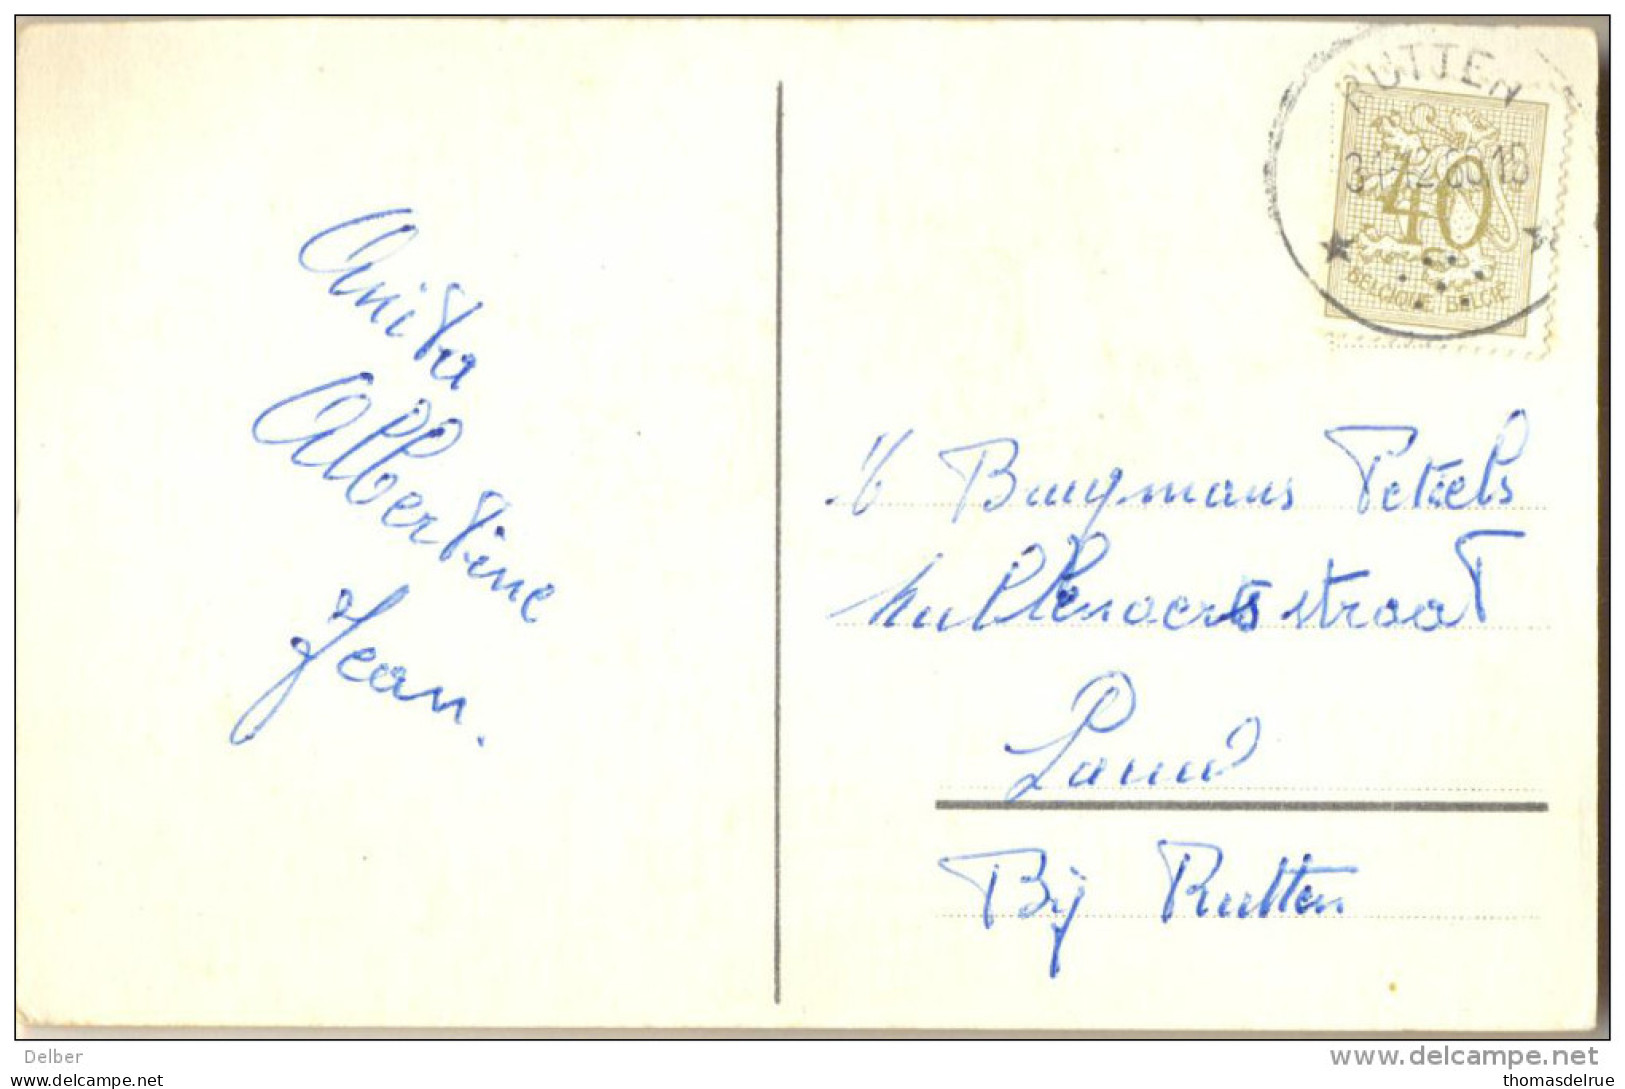 Anita
Albertine
Jean.
RUTTEN
40
BELGIQUE BELGIË
Bruymans Peteels
straat
Lauw
Bij Rutten
Delber
www.delcampe.net
www.delcampe.net
thomasdelrue